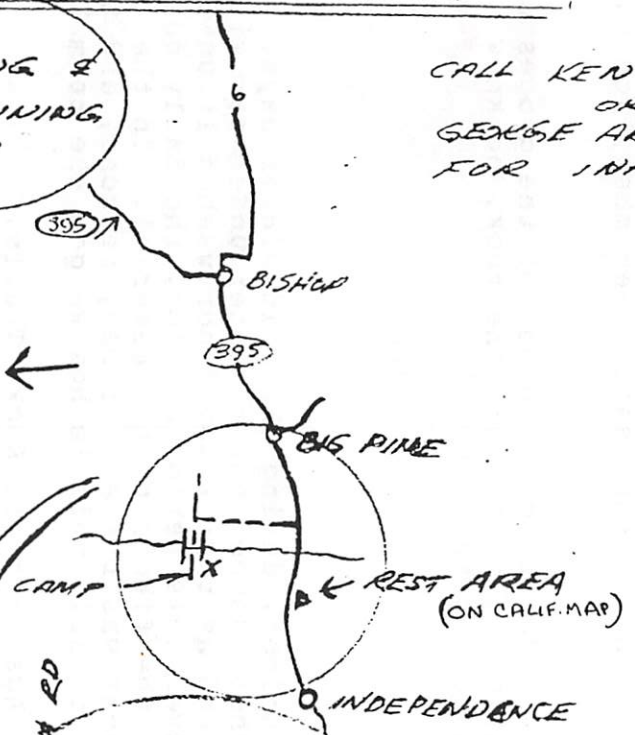 NG &
INING
CALL KEN
OR
GEORGE
FOR
6
395
BISHOP
395
BIG PINE
CAMP
X
REST AREA
(ON CALIF. MAP)
RD
INDEPENDENCE